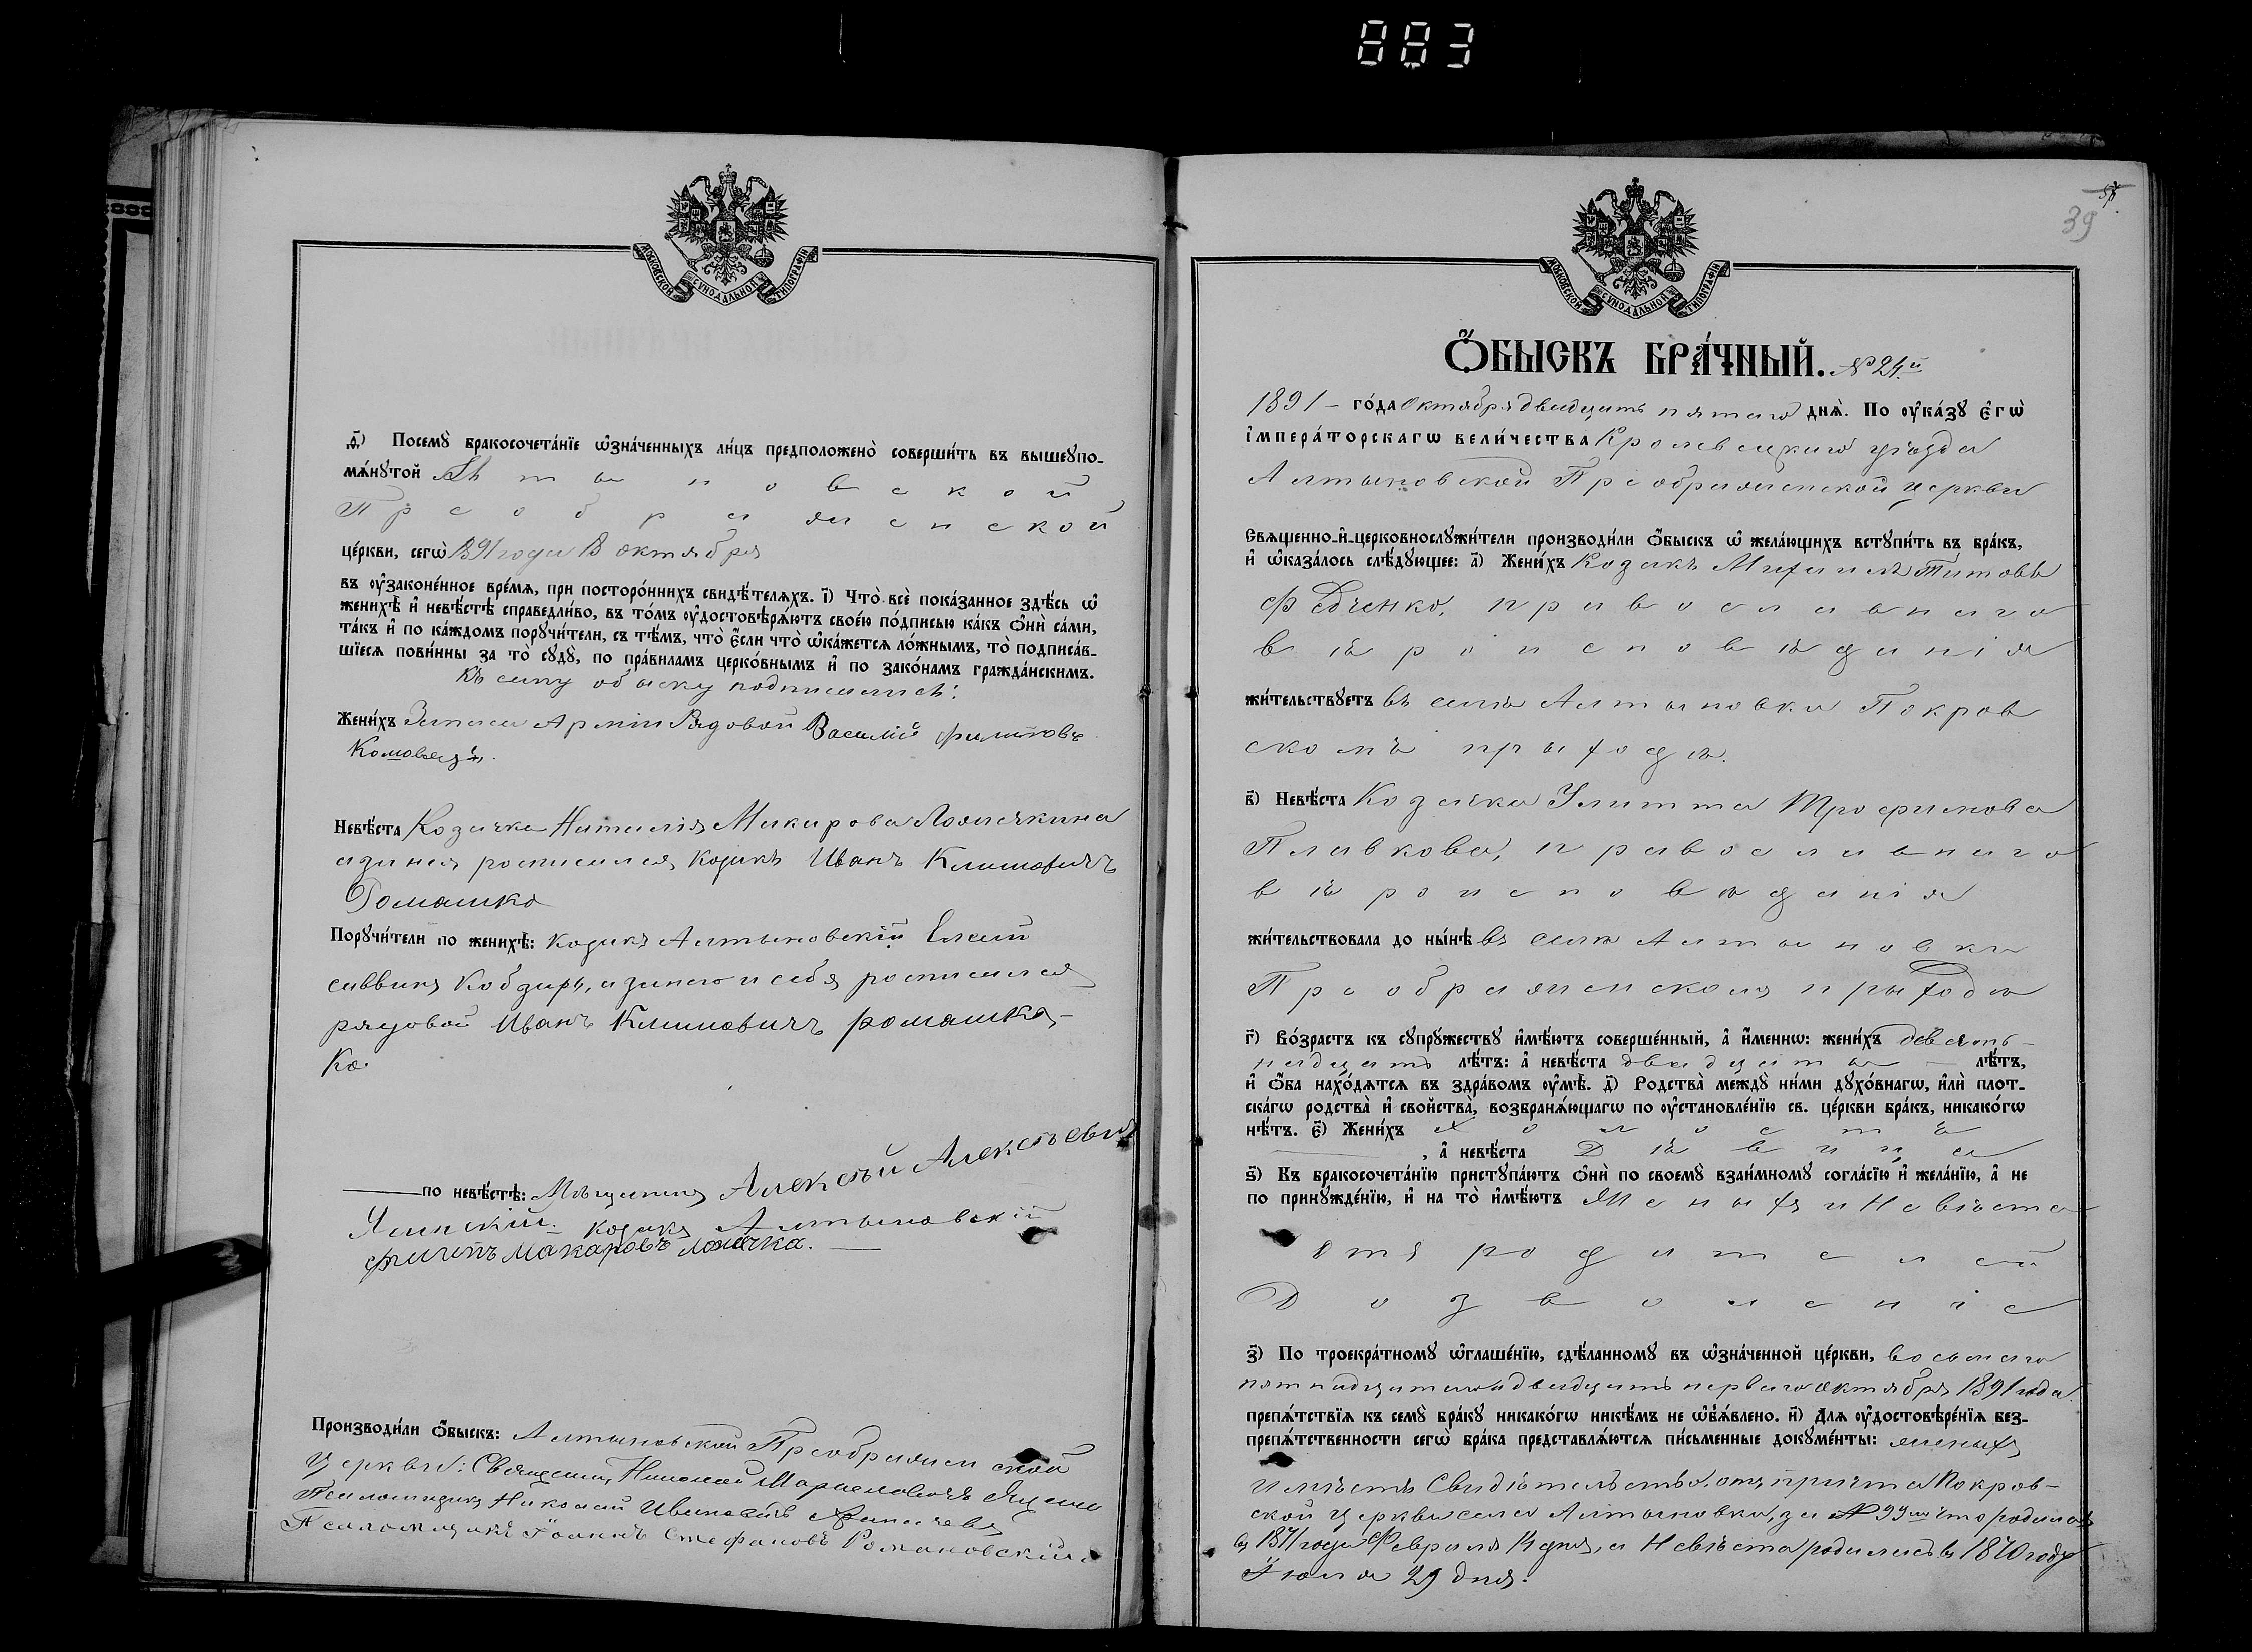 883
МОСКОВСКОЙ СѴНОДАЛЬНОЙ ТИПОГРАФІИ
ѳ҃) Посемꙋ̀ бракосочета́нїе ѡ҆зна́ченныхъ ли́цъ предположено̀ соверши́ть въ вышеꙋпо-
мѧ́нꙋтой Алтыновской
Преображенской
це́ркви, сегѡ̀ 1891 года октября
въ ᲂу҆законе́нное вре́мѧ, при посторо́ннихъ свидѣ́телѧхъ. і҃) Что̀ всѐ пока́занное здѣ́сь ѡ҆
женихѣ̀ и҆ невѣ́стѣ справедли́во, въ то́мъ ᲂу҆достовѣрѧ́ютъ свое́ю по́дписью ка́къ ѻ҆нѝ са́ми,
та́къ и҆ по ка́ждомъ порꙋчи́тели, съ тѣ́мъ, что̀ є҆́сли что̀ ѡ҆ка́жетсѧ ло́жнымъ, то̀ подписа́в-
шїесѧ пови́нны за то̀ сꙋдꙋ̀, по пра́виламъ церко́внымъ и҆ по зако́намъ гражда́нскимъ.
Къ сему обыску подписались:
Жени́хъ Запаса Арміи Рядовой Василій Филиповъ
Невѣ́ста Козачка Наталія Макарова Ломачкина
а за нея росписался козакъ Иванъ Климовичъ
Ромашко
Порꙋчи́тели по женихѣ̀: козакъ Алтыновскій Елисей
Саввинъ Кобзарь, а за него и себя росписался
рядовой Иванъ Климовичъ ромашко-
ко.
по невѣ́стѣ: Мѣщанинъ Алексѣй Алексѣевъ
Ялинскій. козакъ Алтыновскій
Филипъ Макаровъ
Производи́ли ѻ҆́быскъ: Алтыновской Преображенской
церкви: Священникъ Николай
Псаломщикъ Николай Ивановичъ
Псаломщикъ Іоаннъ Стефановъ Романовскій
39
МОСКОВСКОЙ СѴНОДАЛЬНОЙ ТИПОГРАФІИ
Ѻ҆́БЫСКЪ БРА́ЧНЫЙ. № 24й
1891 – го́да Октября двадцать пятаго днѧ̀. По ᲂу҆ка́зꙋ є҆гѡ̀
і҆мпера́торскагѡ вели́чества Кролевецкаго уѣзда
Алтыновской Преображенской церкви
Свѧщенно-и҆-церковнослꙋжи́тели производи́ли ѻ҆́быскъ ѡ҆ жела́ющихъ встꙋпи́ть въ бра́къ,
и҆ ѡ҆каза́лось слѣ́дꙋющее: а҃) Жени́хъ Козакъ Михаилъ Титовъ
Федченко, православнаго
вѣроисповѣданія
жи́тельствꙋетъ въ селѣ Алтыновки Покров
скомъ прыходѣ.
в҃) Невѣ́ста Козачка Улитта Трофимова
Плавкова, православнаго
вѣроисповѣданія
жи́тельствовала до ны́нѣ въ селѣ Алтыновки
Преображенскомъ прыходѣ
г҃) Во́зрастъ къ сꙋпрꙋ́жествꙋ и҆мѣ́ютъ соверше́нный, а҆ и҆́меннѡ: жени́хъ девять-
надцать лѣ́тъ: а҆ невѣ́ста двадцать лѣ́тъ,
и҆ ѻ҆́ба нахо́дѧтсѧ въ здра́вомъ ᲂу҆мѣ̀. д҃) Родства̀ междꙋ̀ ни́ми дꙋхо́внагѡ, и҆лѝ плот-
ска́гѡ родства̀ и҆ сво́йства, возбранѧ́ющагѡ по ᲂу҆становле́нїю св. це́ркви бра́къ, никако́гѡ
нѣ́тъ. є҃) Жени́хъ холостъ
, а҆ невѣ́ста Дѣвица
ѕ҃) Къ бракосочета́нїю пристꙋпа́ютъ ѻ҆нѝ по своемꙋ̀ взаи́мномꙋ согла́сїю и҆ жела́нїю, а҆ не
по принꙋжде́нїю, и҆ на то̀ и҆мѣ́ютъ Женыхъ и Невѣста
отъ родителей
Дозволеніе
з҃) По троекра́тномꙋ ѡ҆глаше́нїю, сдѣ́ланномꙋ въ ѡ҆зна́ченной це́ркви, восьмаго
пятнадцатаго и двадцать перваго октября 1891 года
препѧ́тствїѧ къ семꙋ̀ бра́кꙋ никако́гѡ никѣ́мъ не ѡ҆б̾ѧ́влено. и҃) Длѧ ᲂу҆достовѣре́нїѧ без-
препѧ́тственности сегѡ̀ бра́ка представлѧ́ютсѧ пи́сьменные докꙋме́нты: женыхъ
имѣетъ Свидѣтельство отъ причта Покров-
ской церкви села Алтыновки, за № 99 что родился
въ 1871 года Февраля 14 дня, а Невѣста родилась въ 1870 году
Іюля 29 дня.